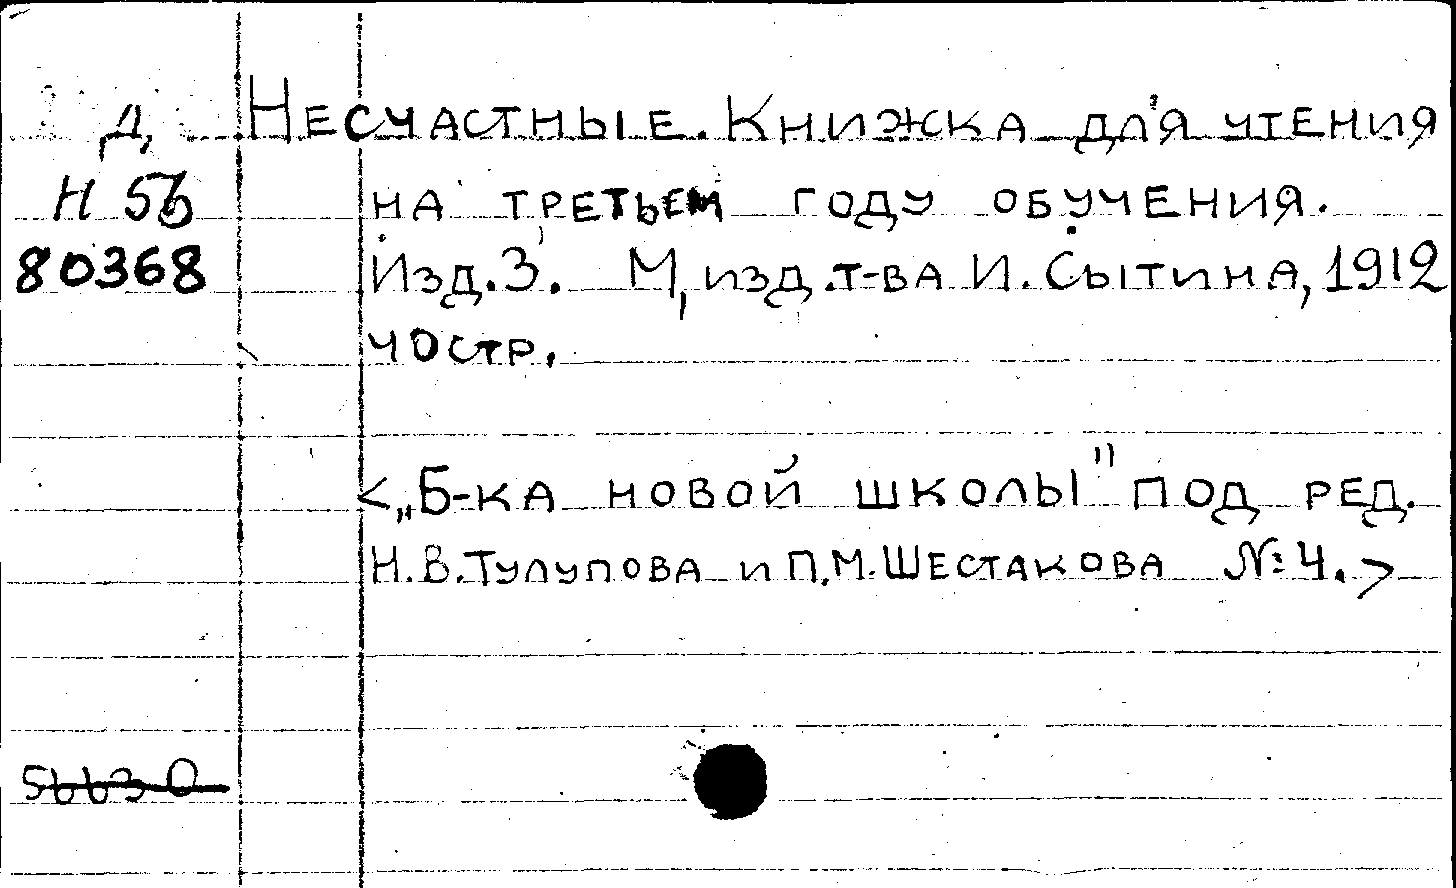 Д Несчастные. Книжка для чтения
Н 56 на третьем году обучения.
80368 Изд. 3. М, изд. т-ва И. Сытина, 1912
40 стр.
<„Б-ка новой школы" под ред.
Н. В. Тулупова и П. М. Шестакова № 4.>